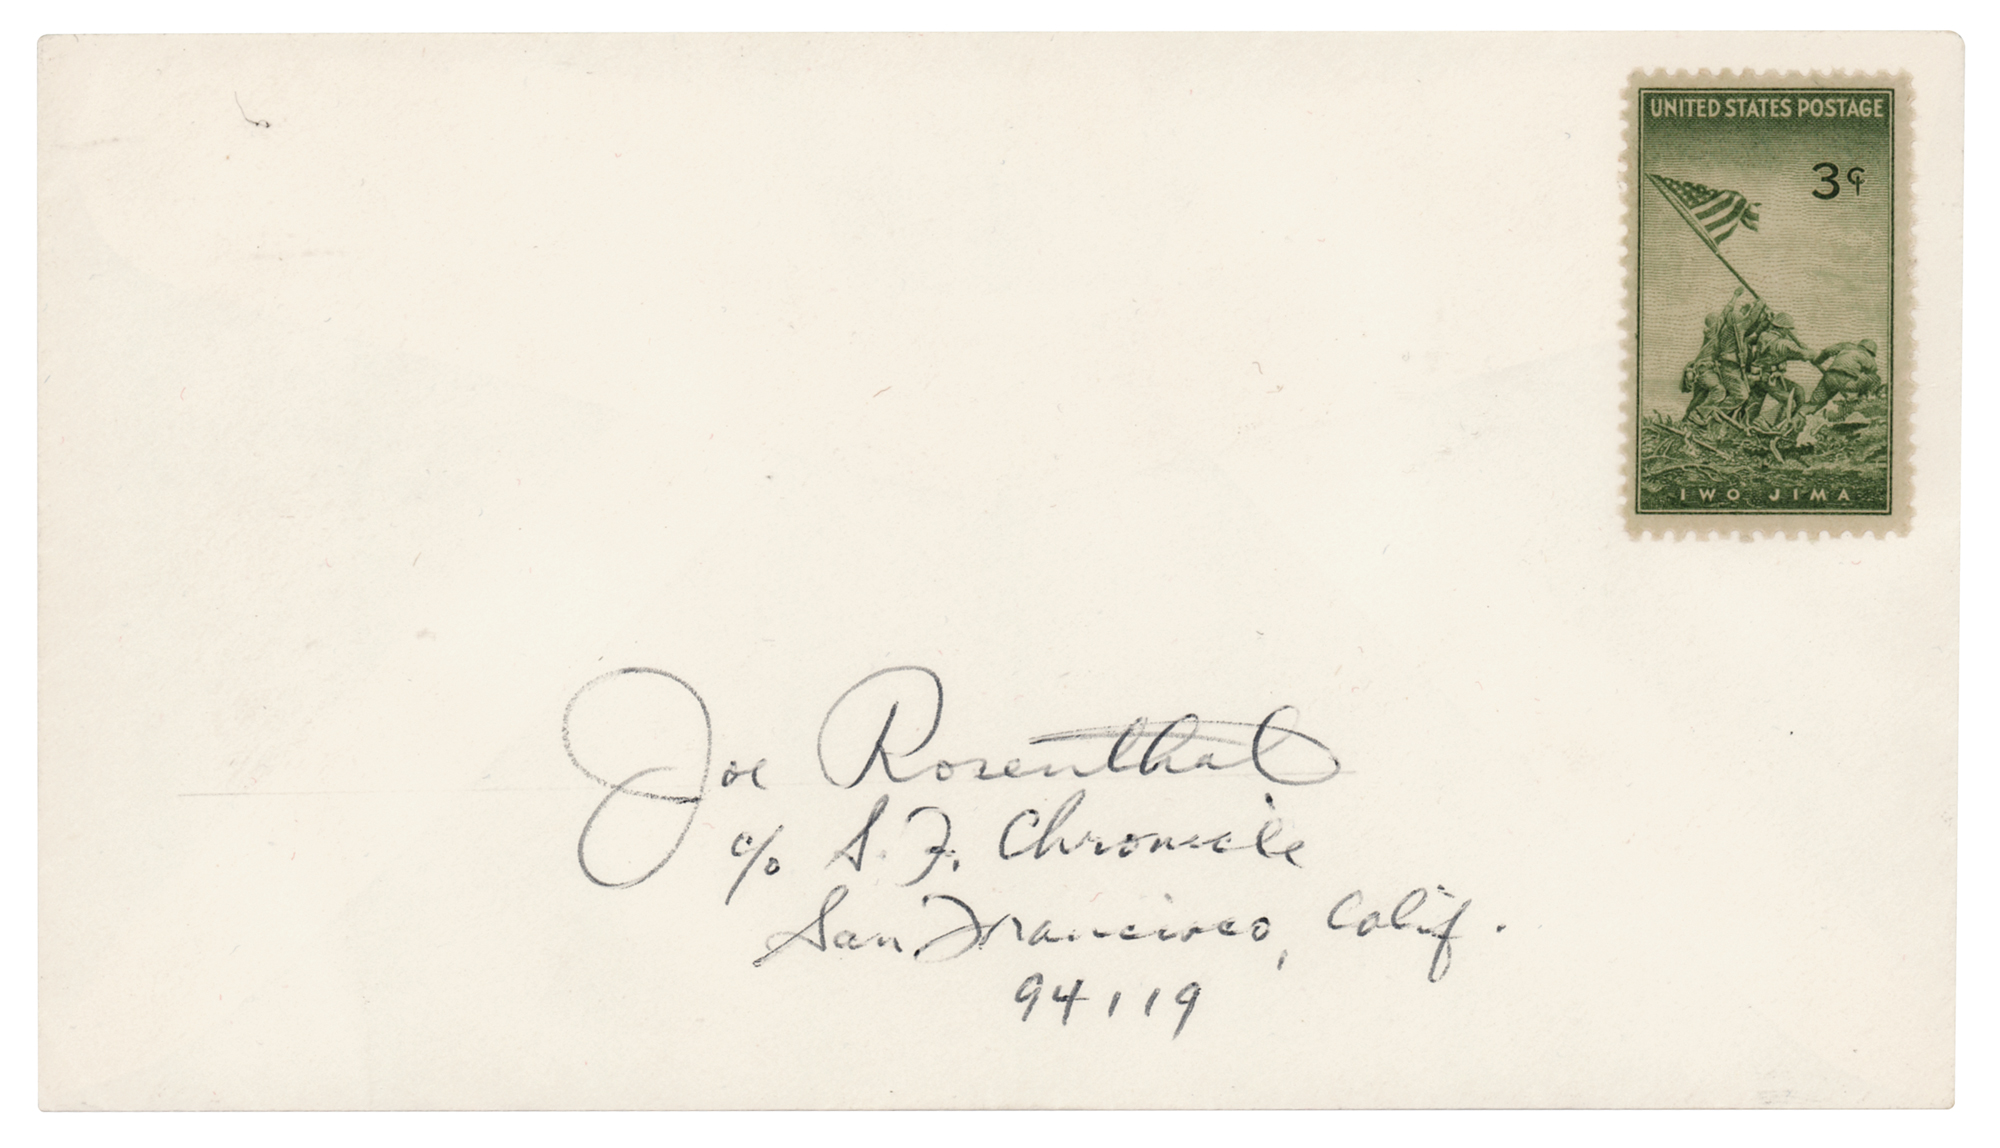 UNITED STATES POSTAGE
3¢
IWO JIMA
Joe Rosenthal
c/o S.F. Chronicle
San Francisco, Calif.
94119